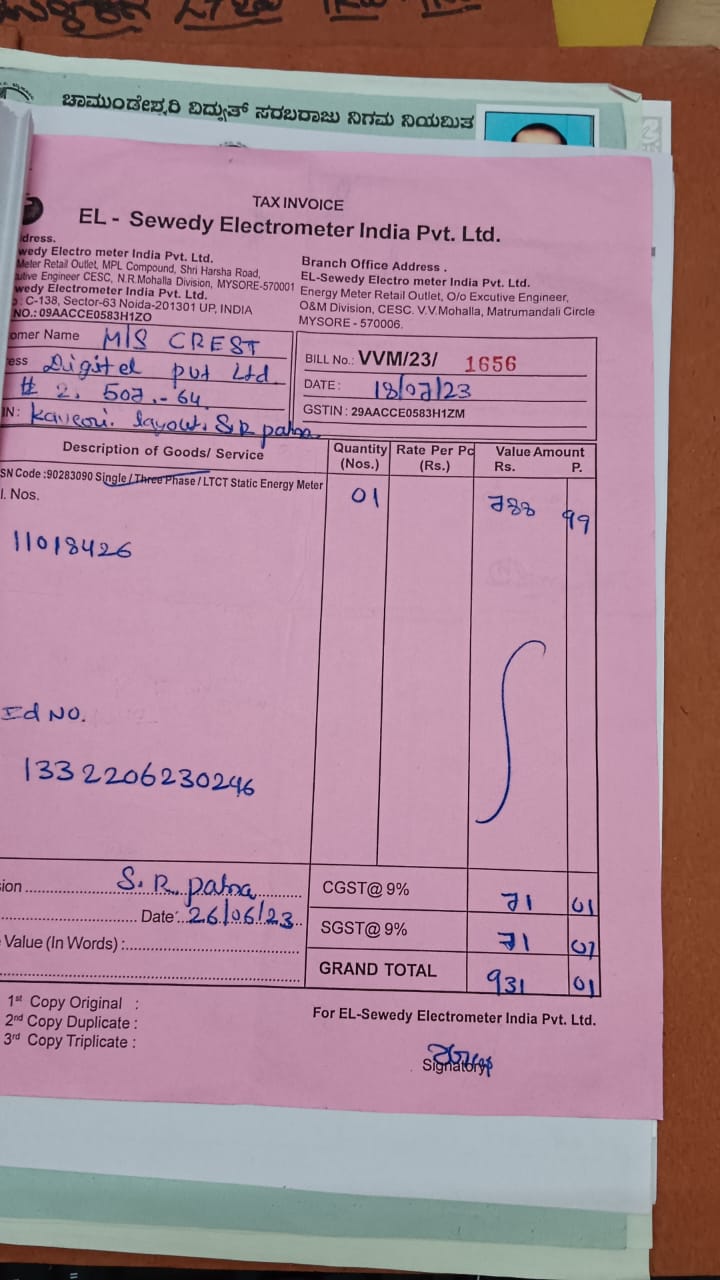 ಚಾಮುಂಡೇಶ್ವರಿ ವಿದ್ಯುತ್ ಸರಬರಾಜು ನಿಗಮ ನಿಯಮಿತ
TAX INVOICE
EL - Sewedy Electrometer India Pvt. Ltd.
dress.
wedy Electro meter India Pvt. Ltd.
Meter Retail Outlet, MPL Compound, Shri Harsha Road,
utive Engineer CESC, N.R.Mohalla Division, MYSORE-570001
wedy Electrometer India Pvt. Ltd.
: C-138, Sector-63 Noida-201301 UP, INDIA
NO.: 09AACCE0583H1ZO
Branch Office Address .
EL-Sewedy Electro meter India Pvt. Ltd.
Energy Meter Retail Outlet, O/o Excutive Engineer,
O&M Division, CESC. V.V.Mohalla, Matrumandali Circle
MYSORE - 570006.
omer Name M/S CREST
ess Digitel pvt Ltd
# 2, 507.-64
IN: Kaveori. layout. S.R patna
BILL No.: VVM/23/ 1656
DATE: 18/07/23
GSTIN : 29AACCE0583H1ZM
Description of Goods/ Service Quantity (Nos.) Rate Per Pc (Rs.) Value Amount Rs. P.
SN Code :90283090 Single / Three Phase / LTCT Static Energy Meter
l. Nos. 01 788 99
11018426
Id NO.
1332206230246
ion S. R. patna CGST@ 9% 71 01
Date: 26/06/23 SGST@ 9% 71 01
Value (In Words) :
GRAND TOTAL 931 01
1st Copy Original :
2nd Copy Duplicate :
3rd Copy Triplicate :
For EL-Sewedy Electrometer India Pvt. Ltd.
Signatory